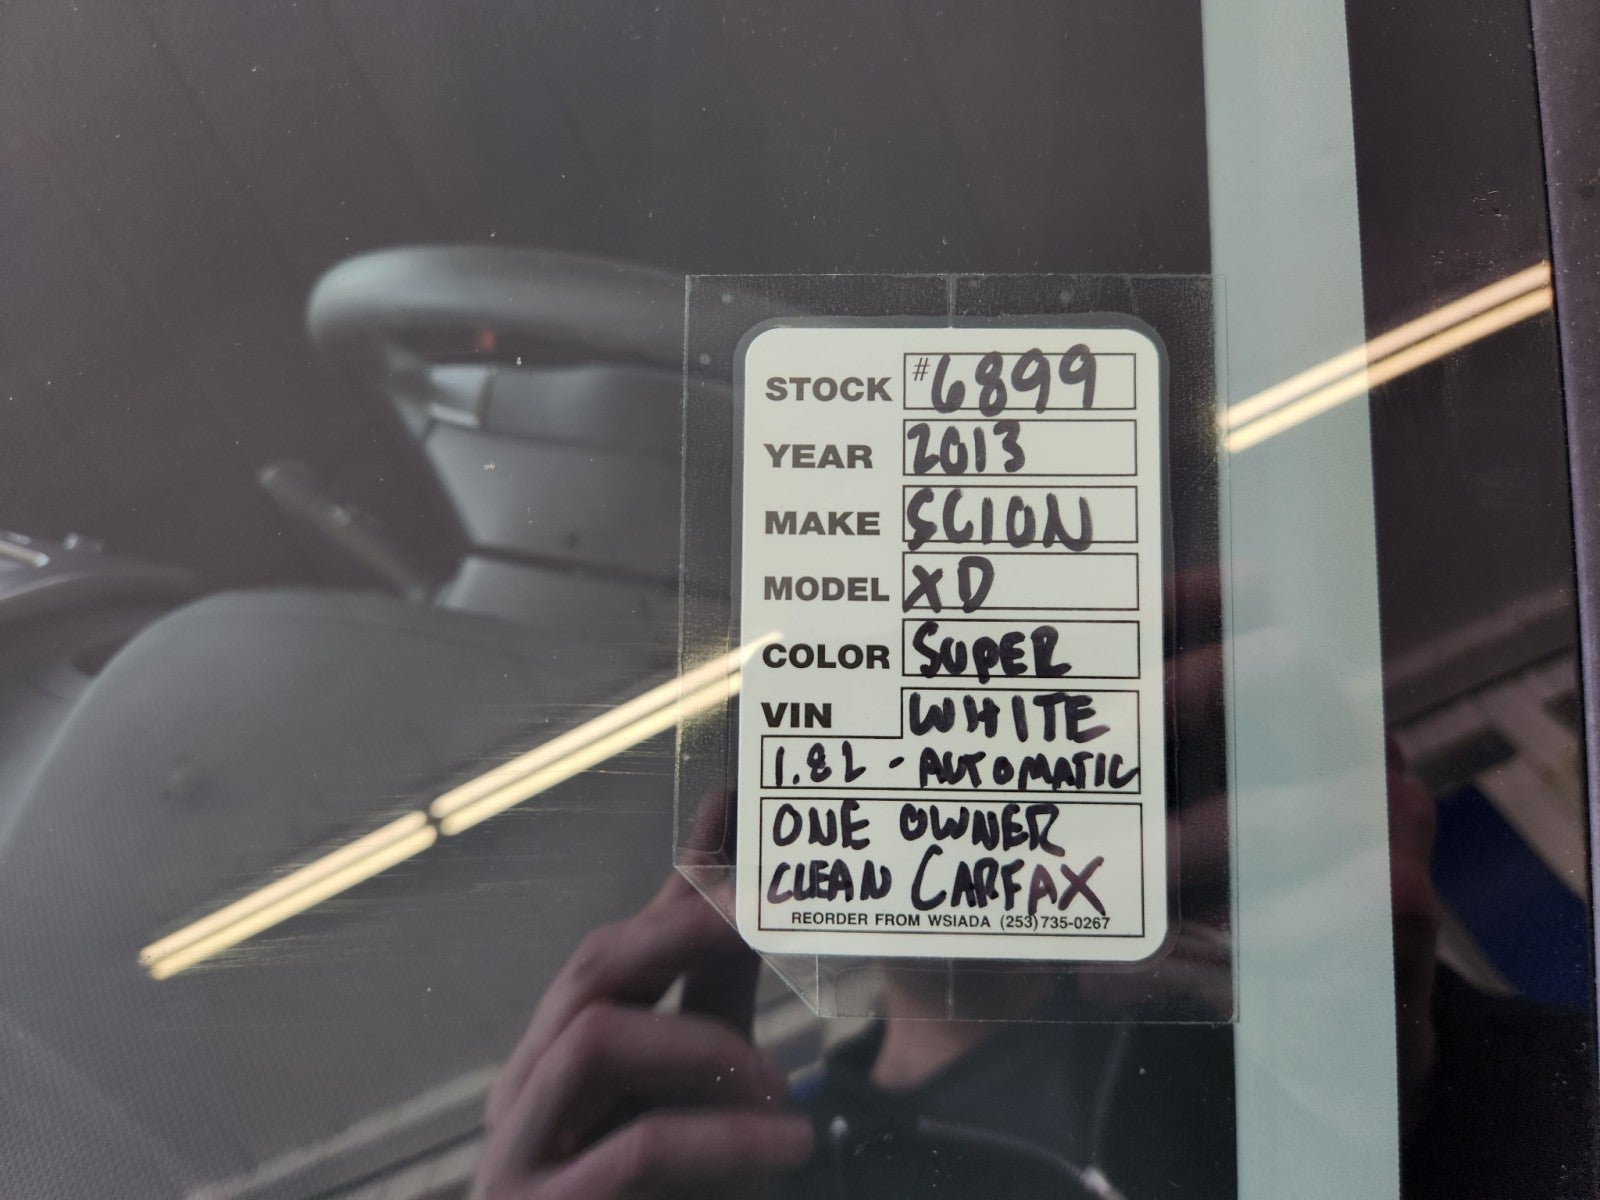 STOCK #6899
YEAR 2013
MAKE SCION
MODEL XD
COLOR SUPER
VIN WHITE
1.8L - AUTOMATIC
ONE OWNER
CLEAN CARFAX
REORDER FROM WSIADA (253)735-0267